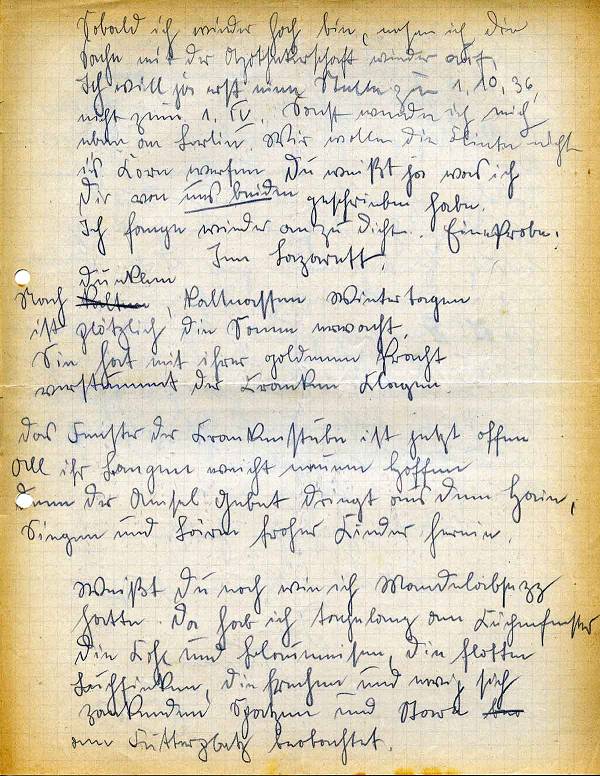 Sobald ich wieder hoch bin, nehm ich die
Sache mit der Apothekerschaft wieder auf.
Ich will ja erst eine Stelle zum 1.10.36,
nicht zum 1. IV. Sonst wende ich mich
eben an Berlin. Wir wollen die Flinte nicht
ins Korn werfen. Du weißt ja was ich
Dir von uns beiden geschrieben habe.
Ich fange wieder an zu dicht.. Eine Probe:
Im Lazarett.
dunklen
Nach kalten, kaltnassen Wintertagen
ist plötzlich die Sonne erwacht,
Sie hat mit ihrer goldenen Pracht
verstummt der Kranken Klagen.
Das Fenster der Krankenstube ist jetzt offen
All ihr Bangen weicht neuem Hoffen
Denn der Amsel Gebet dringt aus dem Hain,
Singen und Lärm froher Kinder herein.
Weißt Du noch wie ich Mandelabszz
hatte. Da hab ich tagelang am Küchenfenster
die Kohl und Blaumeisen, die flotten
Buchfinken, die frechen und ewig sich
zankenden Spatzen und Stare
am Futterplatz beobachtet.